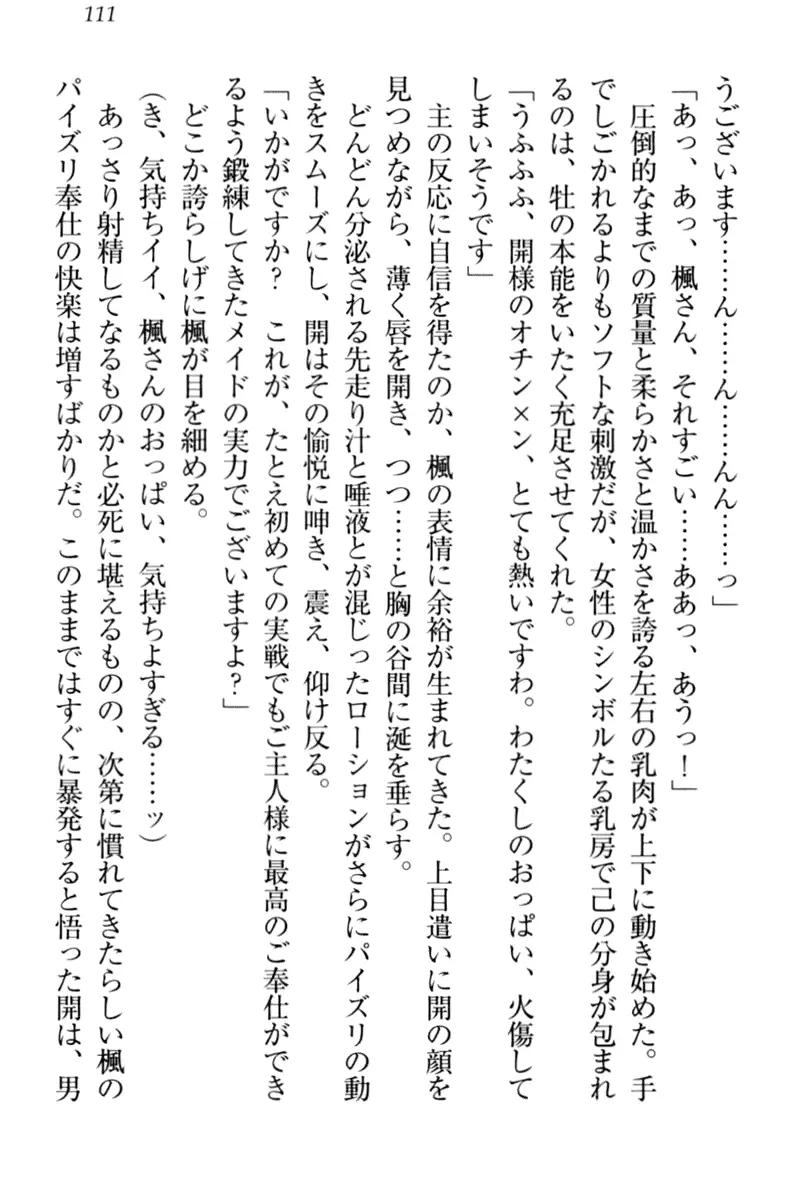 111
うございます……ん……ん……んん……っ」
「あっ、あっ、楓さん、それすごい……ああっ、あうっ！」
　圧倒的なまでの質量と柔らかさと温かさを誇る左右の乳肉が上下に動き始めた。手
でしごかれるよりもソフトな刺激だが、女性のシンボルたる乳房で己の分身が包まれ
るのは、牡の本能をいたく充足させてくれた。
「うふふふ、開様のオチン×ン、とても熱いですわ。わたくしのおっぱい、火傷して
しまいそうです」
　主の反応に自信を得たのか、楓の表情に余裕が生まれてきた。上目遣いに開の顔を
見つめながら、薄く唇を開き、つつ……と胸の谷間に涎を垂らす。
　どんどん分泌される先走り汁と唾液とが混じったローションがさらにパイズリの動
きをスムーズにし、開はその愉悦に呻き、震え、仰け反る。
「いかがですか？　これが、たとえ初めての実戦でもご主人様に最高のご奉仕ができ
るよう鍛練してきたメイドの実力でございますよ？」
　どこか誇らしげに楓が目を細める。
（き、気持ちイイ、楓さんのおっぱい、気持ちよすぎる……ッ）
　あっさり射精してなるものかと必死に堪えるものの、次第に慣れてきたらしい楓の
パイズリ奉仕の快楽は増すばかりだ。このままではすぐに暴発すると悟った開は、男